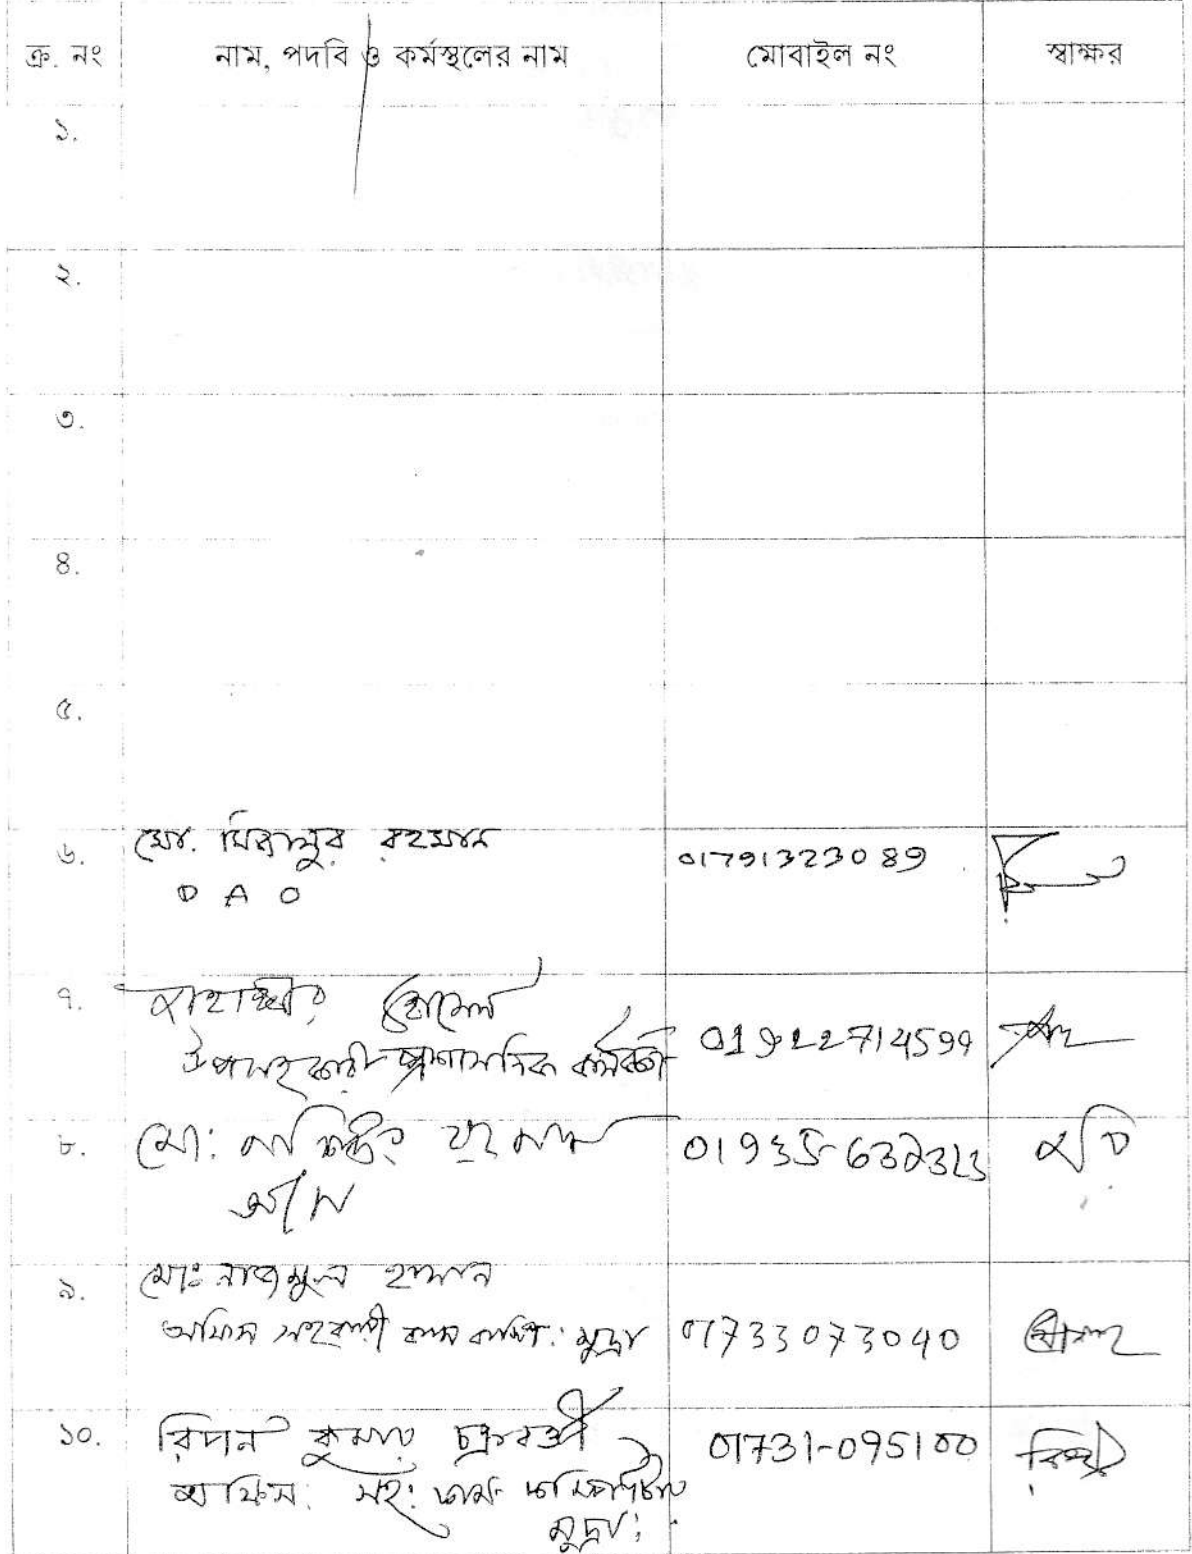 ক্র. নং নাম, পদবি ও কর্মস্থলের নাম মোবাইল নং স্বাক্ষর
১.
২.
৩.
৪.
৫.
৬. মো. মিজানুর রহমান 01791323089
D A O
৭. জাহাঙ্গীর হোসেন
উপসহকারী প্রশাসনিক কর্মকর্তা 01922714599
৮. মো: রহমান 01935-632323
৯. মোঃ নাজমুল হাসান
অফিস সহকারী কাম কম্পি: মুদ্রা 01733073040
১০. রিপন কুমার চক্রবর্ত্তী 01731-095100
অফিস: সহ: কাম কম্পিউটার
মুদ্রা: